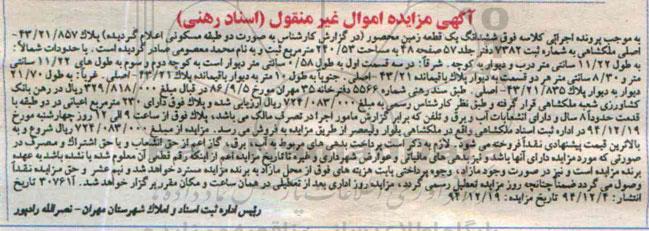 آگهی مزایده اموال غیر منقول (اسناد رهنی)
به موجب پرونده اجرائی کلاسه فوق ششدانگ یک قطعه زمین محصور (در گزارش کارشناس به صورت دو طبقه مسکونی اعلام گردیده) پلاک ۴۳/۲۱/۸۵۷-
اصلی ملکشاهی به شماره ثبت ۷۳۸۲ دفتر جلد ۵۷ صفحه ۴۸ به مساحت ۲۴۰/۵۳ مترمربع ثبت و به نام محمد معصومی صادر گردیده است. با حدودات شمالاً:
به طول ۱۱/۲۲ سانتی متر درب و دیوار به کوچه. شرقاً: در سه قسمت اول به طول ۰/۵۸ سانتی متر دیوار است به کوچه دوم و سوم به طول های ۱۱/۲۲ سانتی
متر و ۸/۳۰ سانتی متر هر دو قسمت به دیوار پلاک باقیمانده ۴۳/۲۱- اصلی. جنوبا به طول ۱۰ متر به دیوار باقیمانده پلاک ۴۳/۲۱- اصلی. غرباً: به طول ۲۱/۷۰
دیوار به دیوار پلاک ۴۳/۲۱/۸۳۵- اصلی. طبق سند رهنی شماره ۵۵۶۶ دفترخانه ۳۵ مهران مورخ ۸۶/۹/۵ در قبال مبلغ ۳۲۹/۸۱۸/۰۰۰ ریال در رهن بانک
کشاورزی شعبه ملکشاهی قرار گرفته و طبق نظر کارشناس رسمی به مبلغ ۷۲۴/۰۸۳/۰۰۰ ریال ارزیابی شده و پلاک فوق دارای ۲۳۰ مترمربع اعیانی در دو طبقه با
قدمت حدوداً ۸ سال و دارای انشعابات آب و برق و تلفن که برابر گزارش مامور اجرا در تصرف مالک می باشد، پلاک فوق از ساعت ۹ الی ۱۲ روز چهارشنبه مورخ
۹۴/۱۲/۱۹ در اداره ثبت اسناد ملکشاهی واقع در ملکشاهی بلوار ولیعصر از طریق مزایده به فروش می رسد. مزایده از مبلغ ۷۲۴/۰۸۳/۰۰۰ ریال شروع و به
بالاترین قیمت پیشنهادی نقداً فروخته می شود. لازم به ذکر است پرداخت بدهی های مربوط به آب، برق، گاز اعم از حق انشعاب و یا حق اشتراک و مصرف در
صورتی که مورد مزایده دارای آنها باشد و نیز بدهی های مالیاتی و عوارض شهرداری و غیره تا تاریخ مزایده اعم از اینکه رقم قطعی آن معلوم شده یا نشده باشد به عهده
برنده مزایده است و نیز در صورت وجود مازاد، وجوه پرداختی بابت هزینه های فوق از محل مازاد به برنده مزایده مسترد خواهد شد و نیم عشر و حق مزایده نقداً
وصول می گردد ضمناً چنانچه روز مزایده تعطیل رسمی گردد، مزایده روز اداری بعد از تعطیلی در همان ساعت و مکان مقرر برگزار خواهد شد. ۳۰۷۶۱ تاریخ
انتشار: ۹۴/۱۲/۴ تاریخ مزایده: ۹۴/۱۲/۱۹
رئیس اداره ثبت اسناد و املاک شهرستان مهران - نصرالله رادپور